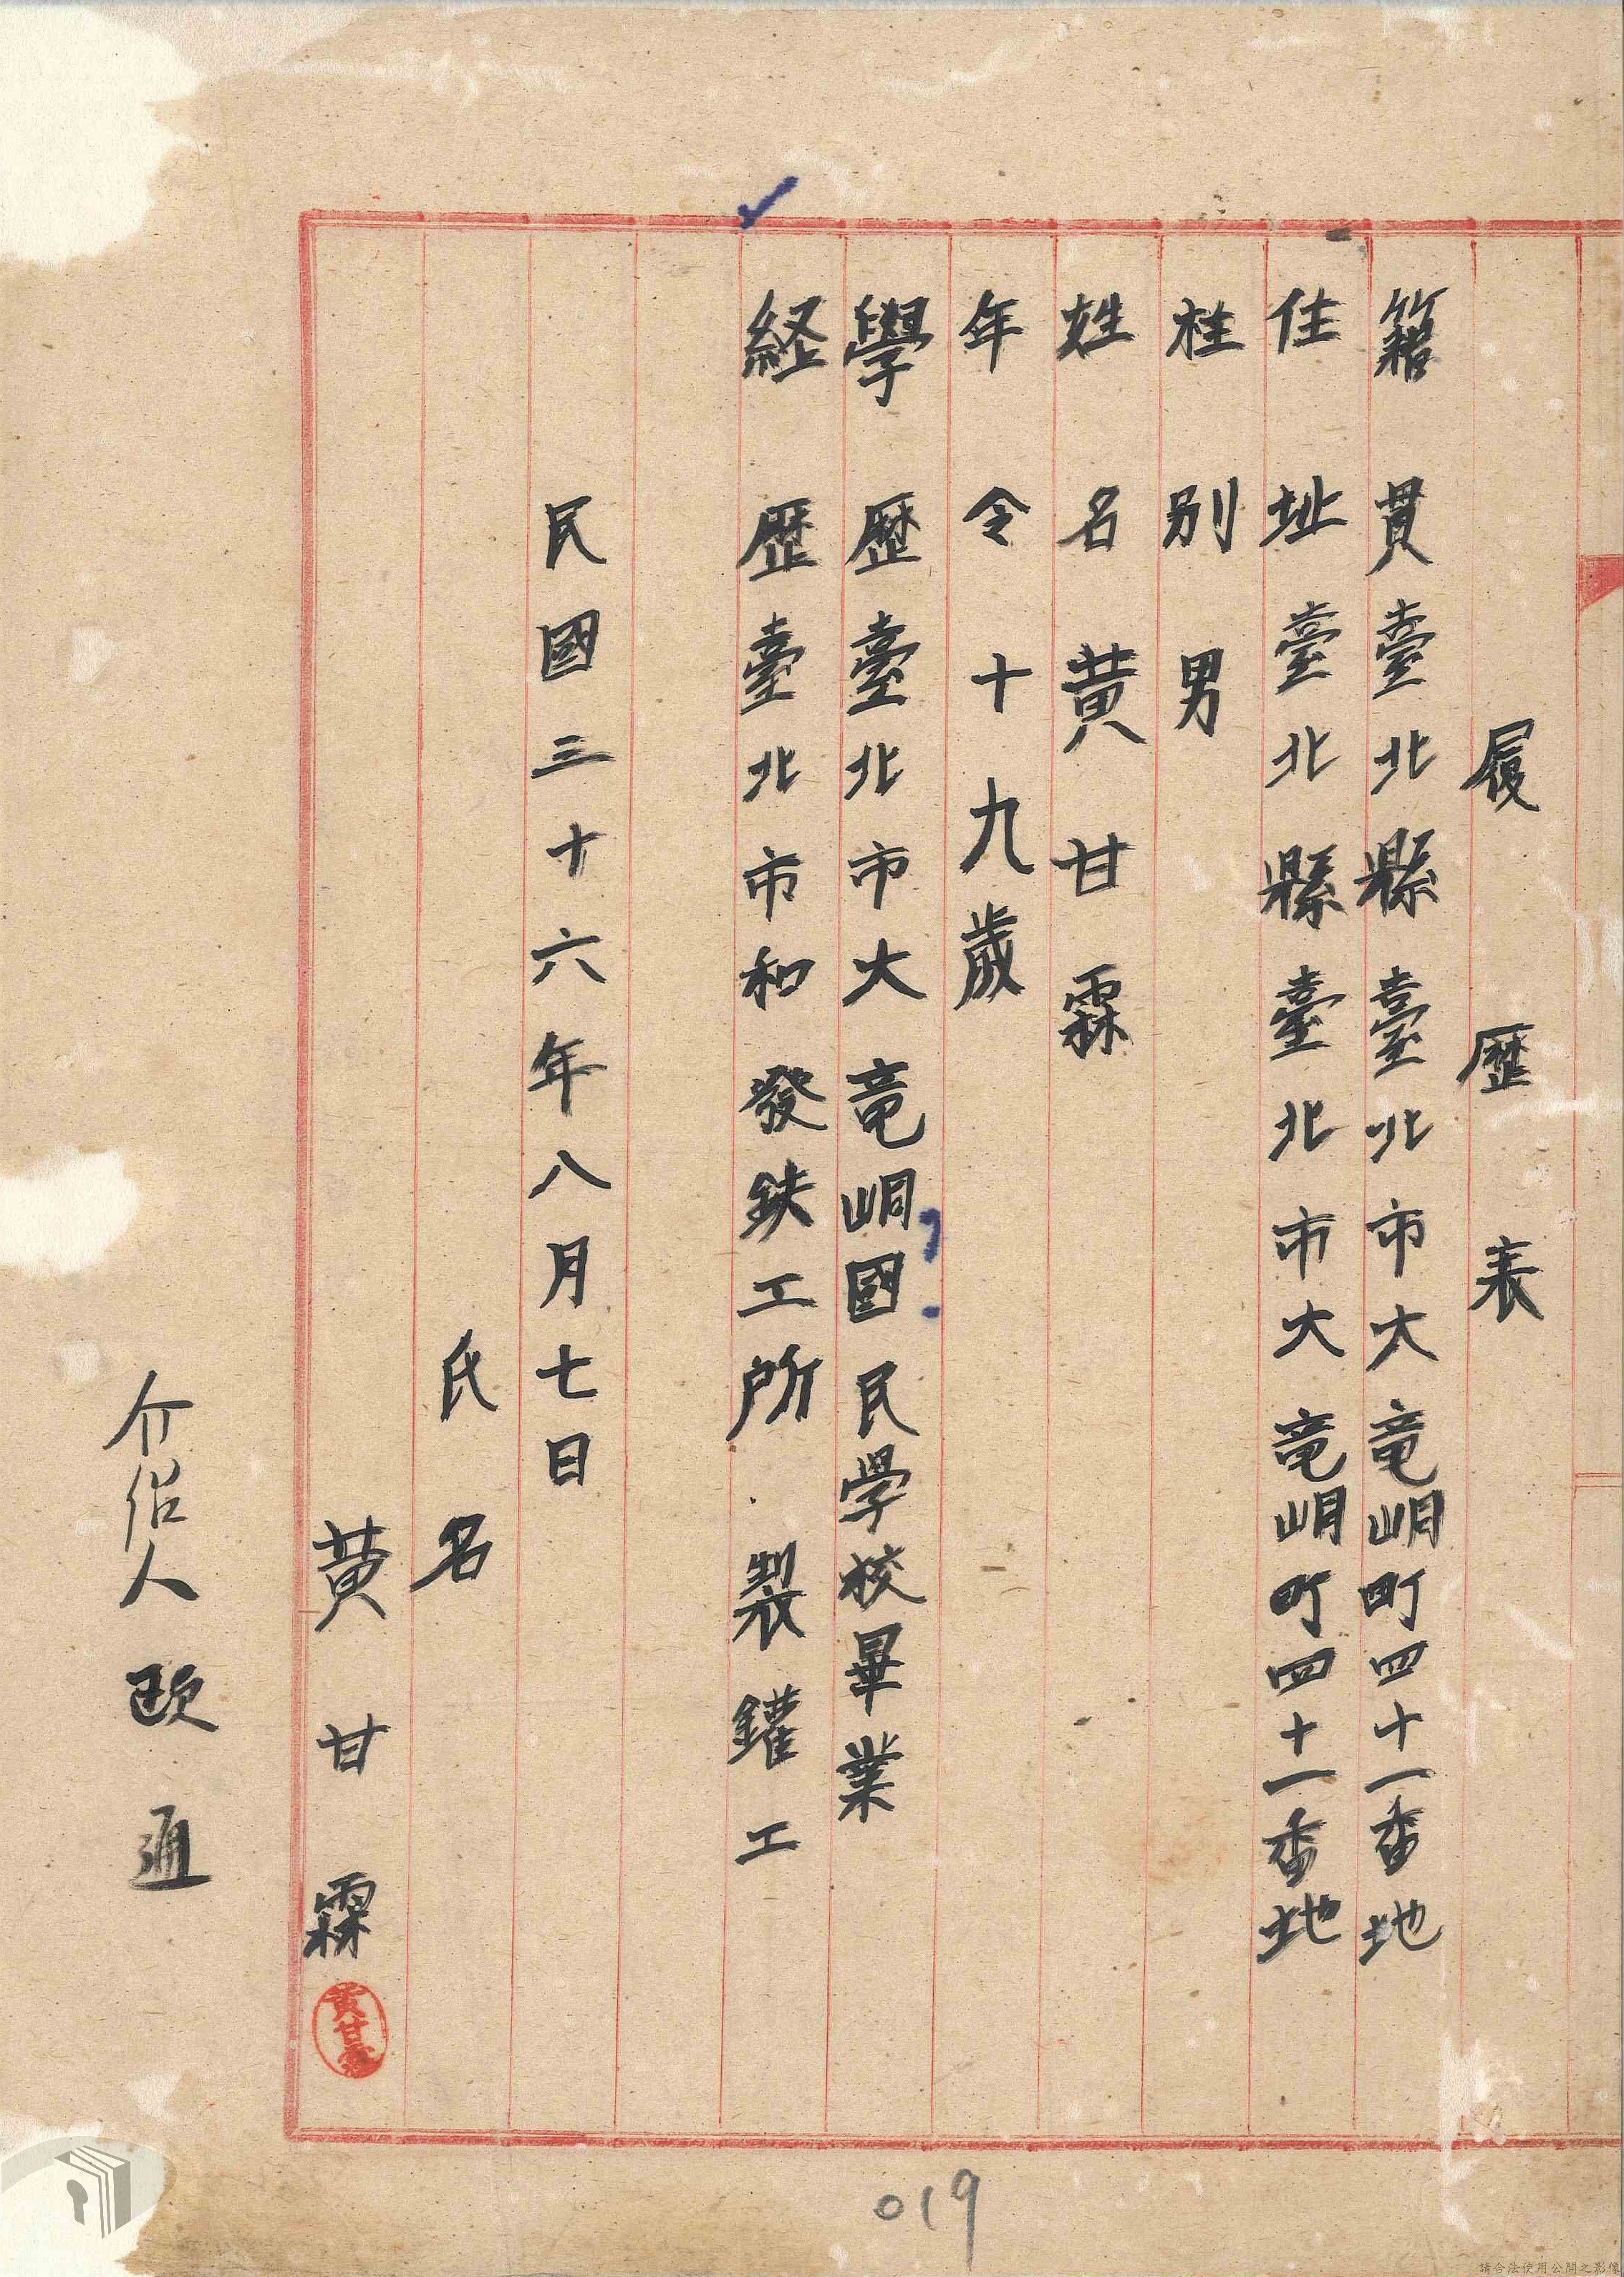 履歷表
籍貫臺北縣臺北市大竜峒町四十一番地
住址臺北縣臺北市大竜峒町四十一番地
性別男
姓名黃甘霖
年令十九歲
學歷臺北市大竜峒國民學校畢業
経歷臺北市和發鉄工所 製鑵工
民國三十六年八月七日
氏名
黃甘霖
黃甘霖
介紹人 歐通
019
請合法使用公開之影像